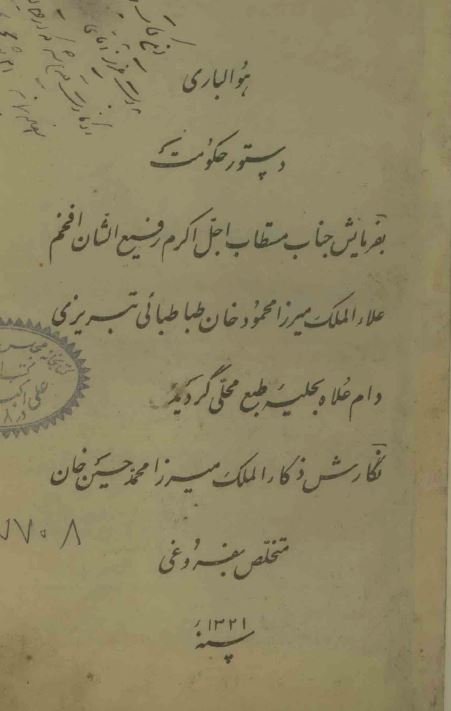 هو الباری
دستور حکومت
بفرمایش جناب مستطاب اجل اکرم رفیع الشان افخم
علاء الملک میرزا محمود خان طباطبائی تبریزی
دام علاه بحلیه طبع محلی گردید
نگارش ذکاء الملک میرزا محمد حسین خان
متخلص بفروغی
سنه ۱۳۲۱
علی اکبر
۷۷۰۸